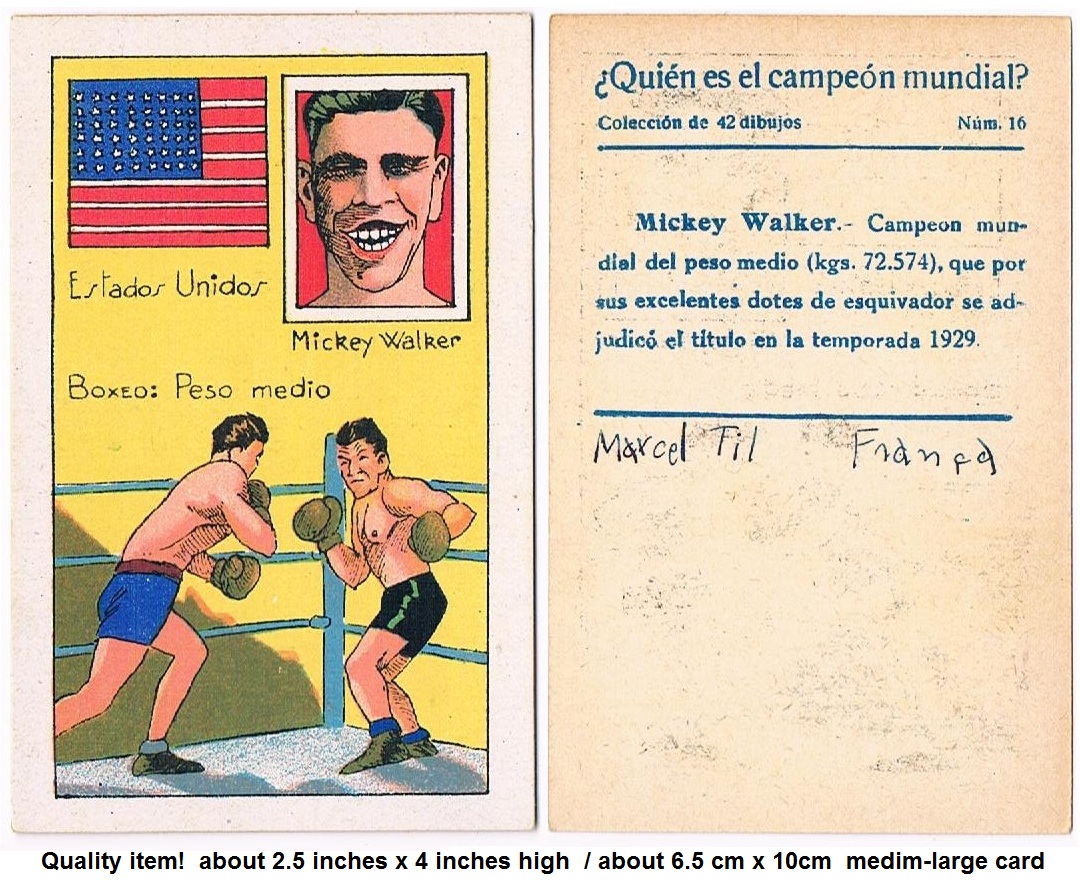 Estados Unidos
Mickey Walker
Boxeo: Peso medio
¿Quién es el campeón mundial?
Colección de 42 dibujos Núm. 16
Mickey Walker.- Campeon mun-
dial del peso medio (kgs. 72.574), que por
sus excelentes dotes de esquivador se ad-
judicó el título en la temporada 1929.
Marcel Til França
Quality item! about 2.5 inches x 4 inches high / about 6.5 cm x 10cm medim-large card